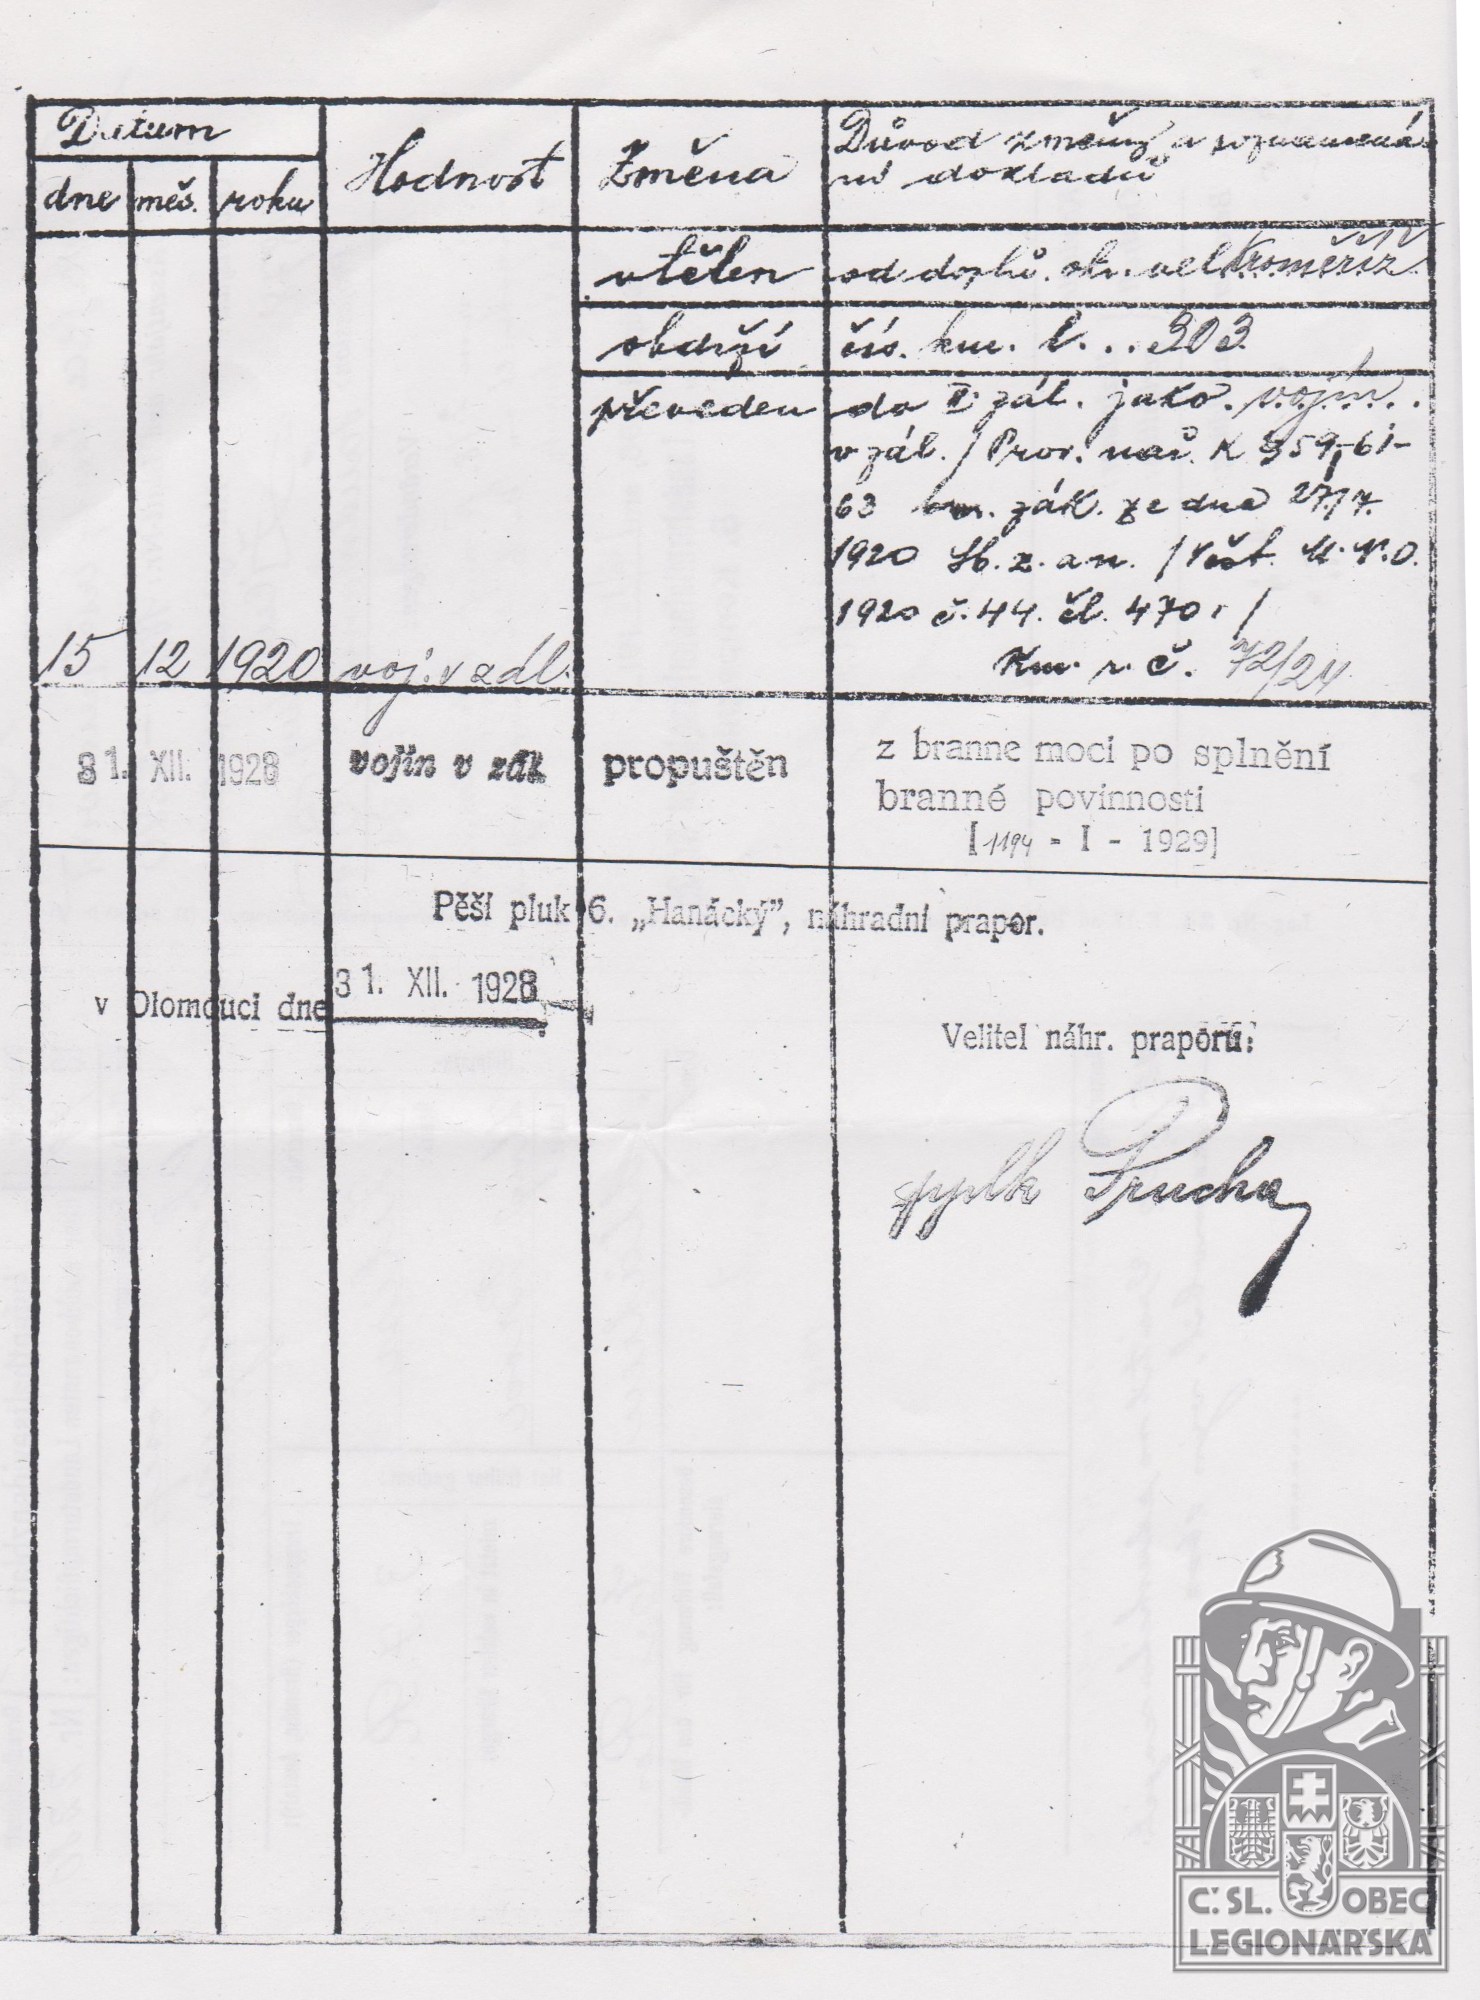 Datum
dne měs. roku
Hodnost
Změna
Důvod změny a poznamená-
ní dokladů
vtělen od dopl. okr. vel. Kroměříž
obdrží čís. km. l. .. 303
převeden do II. zál. jako. vojín...
v zál. / Prov. nař. k § 59,-61-
63 br. zák. ze dne 27./7.
1920 Sb. z. a n. / Věst. M.N.O.
1920 č. 44. čl. 470. /
Km. r. č. 72/24
15 12 1920 voj. v zál.
31. XII. 1928 vojín v zál. propuštěn z branne moci po splnění
branné povinnosti
[1194 - I - 1929]
Pěší pluk 6. „Hanácký”, náhradní prapor.
v Olomouci dne 31. XII. 1928
Velitel náhr. praporu:
pplk Prucha
Č.SL. OBEC
LEGIONÁŘSKÁ